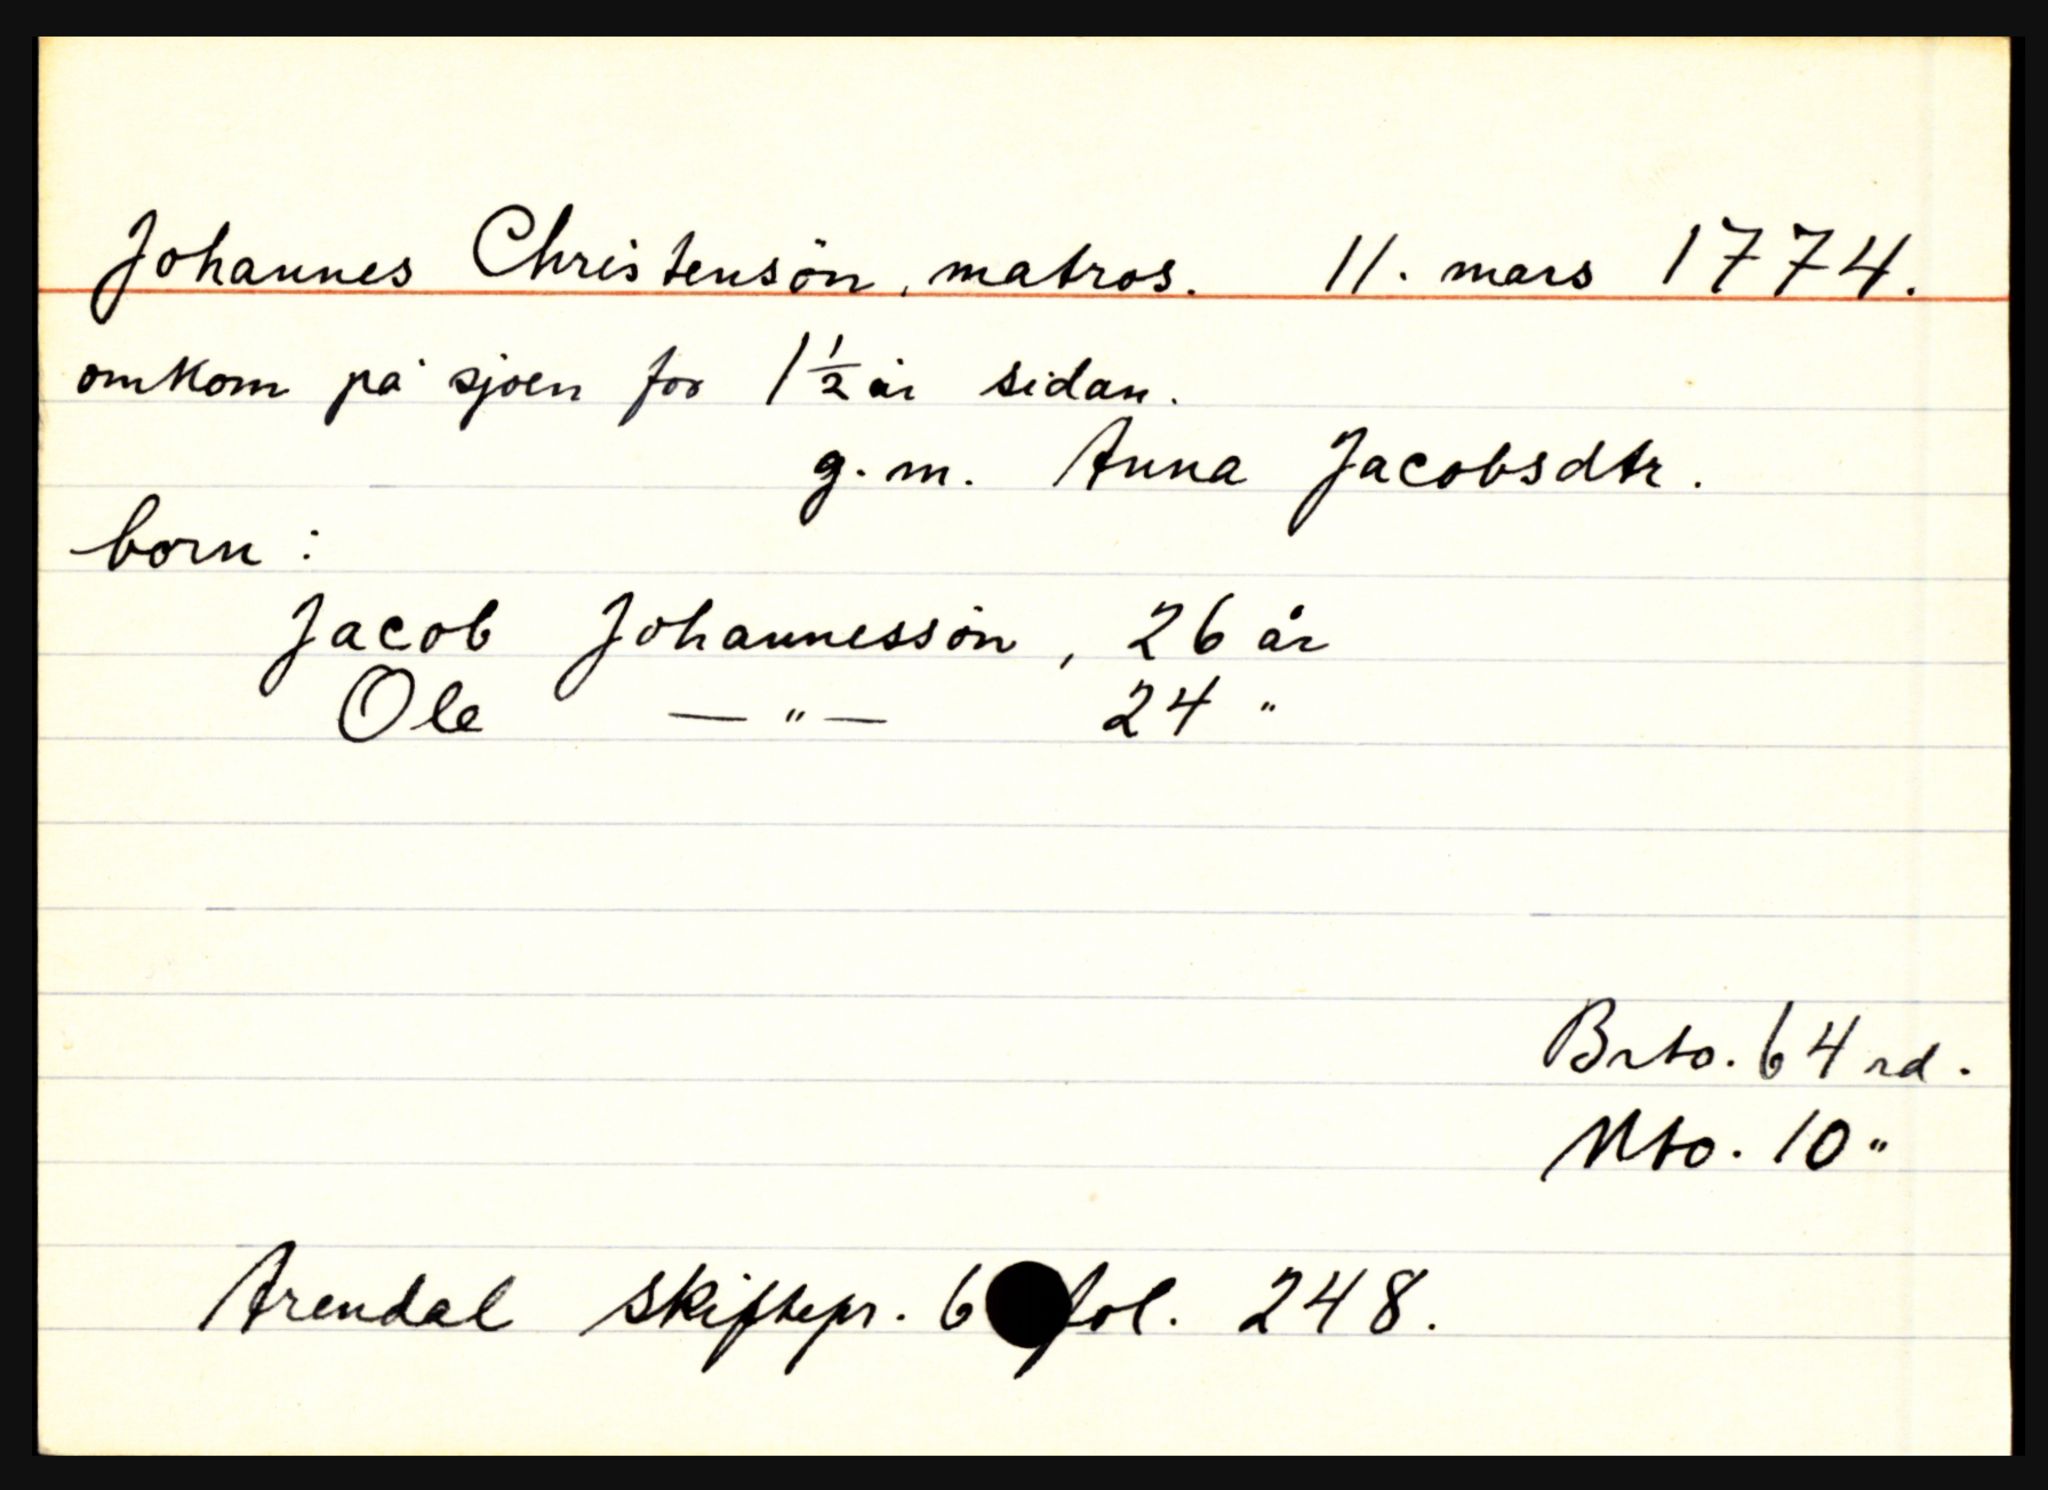 Johannes Christensön, matros. 11. mars 1774.
omkom på sjoen for 1 1/2 år sidan.
g. m. Anna Jacobsdtr.
born :
Jacob Johannessön, 26 år
Ole — " — 24 "
Brto. 64 rd.
Nto. 10 "
Arendal skiftepr. 6 fol. 248.